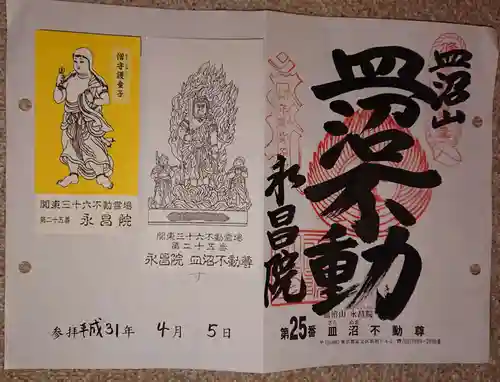 僧守護童子
關東三十六不動霊場
第二十五番 永昌院
關東三十六不動霊場
第二十五番
永昌院 皿沼不動尊
参拝 平成31年 4月 5日
皿沼山
皿沼不動
永昌院
皿沼山 永昌院
第25番 皿沼不動尊